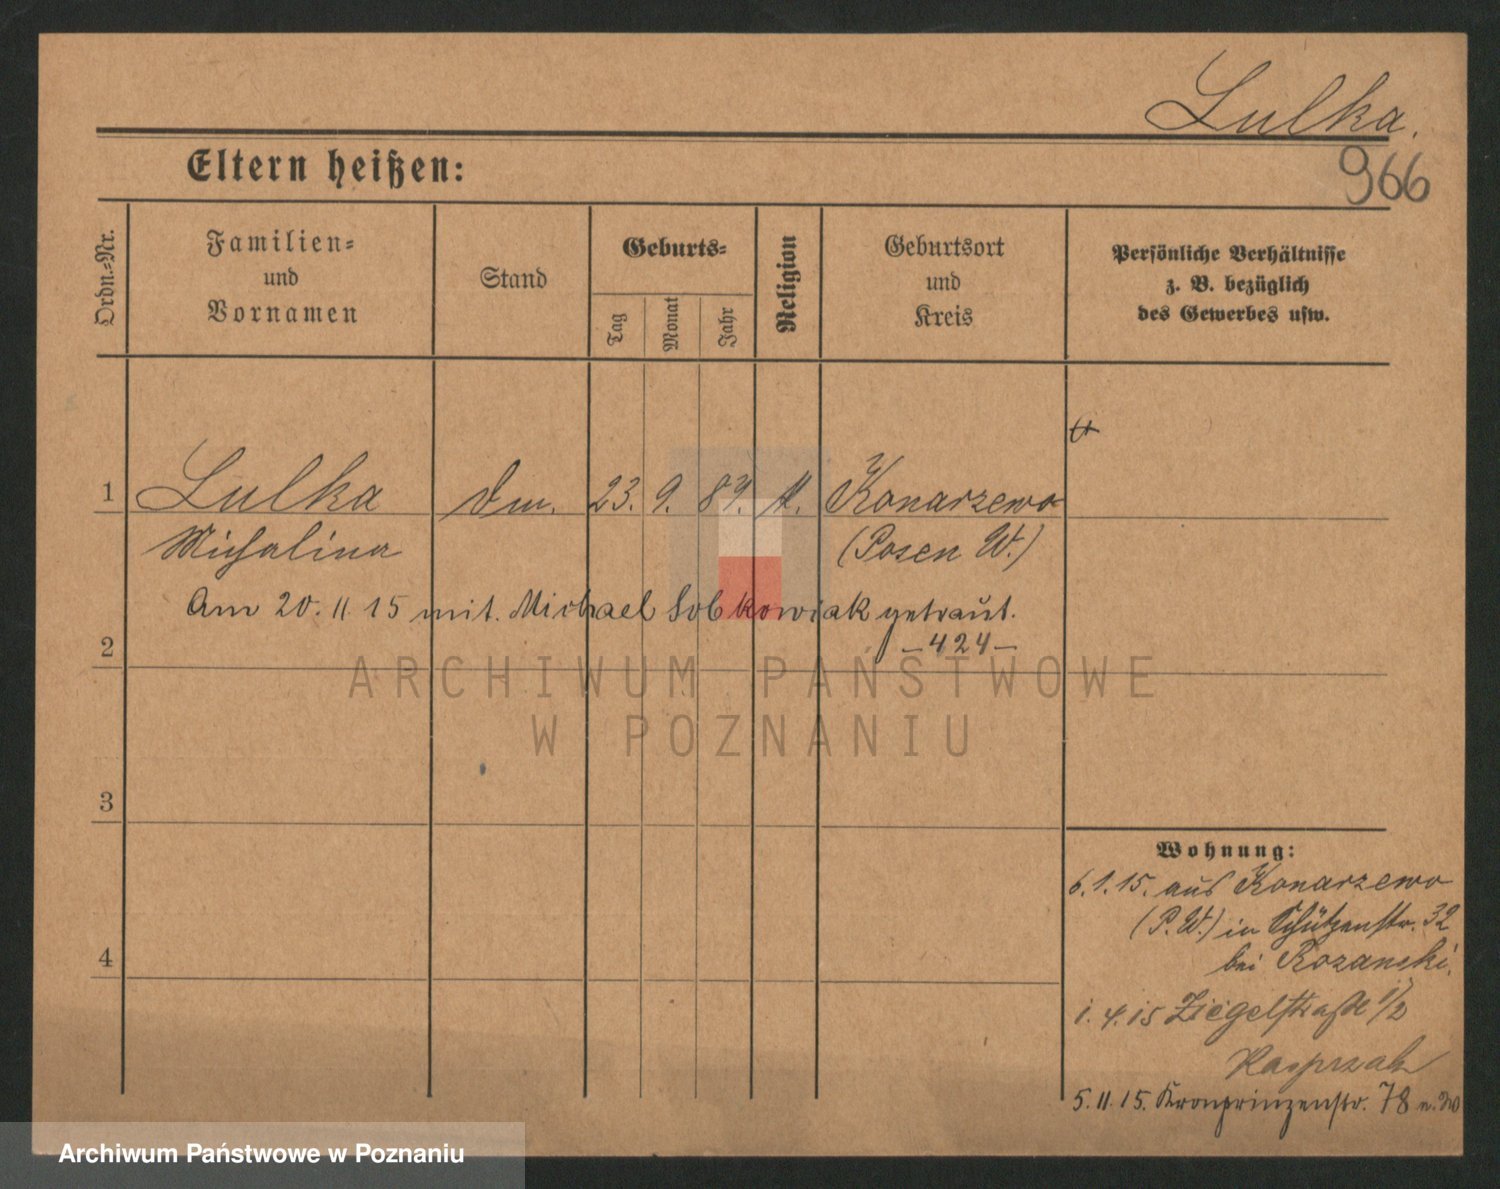 Lulka.
966
Eltern heißen:
Ordn.=Nr.
Familien=
und
Vornamen
Stand
Geburts=
Tag
Monat
Jahr
Religion
Geburtsort
und
Kreis
Persönliche Verhältnisse
z. B. bezüglich
des Gewerbes usw.
1
Lulka
23. 9. 89. K. Konarzewo
Michalina
(Posen W.)
Am 20. 11 15 mit. Michael Sobkowiak getraut.
— 424 —
2
3
4
Wohnung:
6. 1. 15. aus Konarzewo
(P. W.) in Schützenstr. 32
bei Rozanski.
1. 4. 15 Ziegelstraße 1/2
Kasprzak
5. 11. 15. Kronprinzenstr. 78
ARCHIWUM PAŃSTWOWE
W POZNANIU
Archiwum Państwowe w Poznaniu